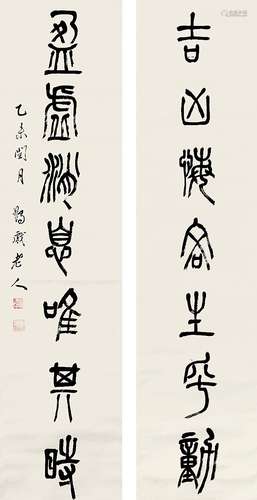 吉凶悔吝生乎動
盈虛消息唯其時
乙 閏月 老人